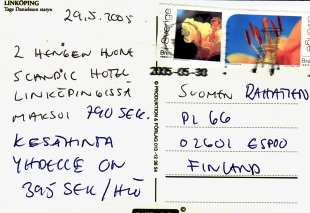 LINKÖPING
Tage Danielsson statyn
29.5.2005
2 HENGEN HUONE
SCANDIC HOTEL
LINKÖPINGISSÄ
MAKSOI 790 SEK.
KESÄHINTA
YHDELLE ON
395 SEK/HLÖ
Sverige
2005-05-30
SUOMEN RAHATIETO
PL 66
02601 ESPOO
FINLAND